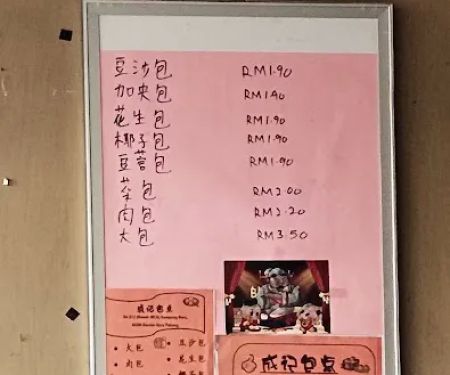 豆沙包 RM1.90
加央包 RM1.90
花生包 RM1.90
椰子包 RM1.90
豆蓉包 RM1.90
菜包 RM2.00
肉包 RM2.20
大包 RM3.50
成记包点
大包
肉包
豆沙包
花生包
椰子包
成记包点